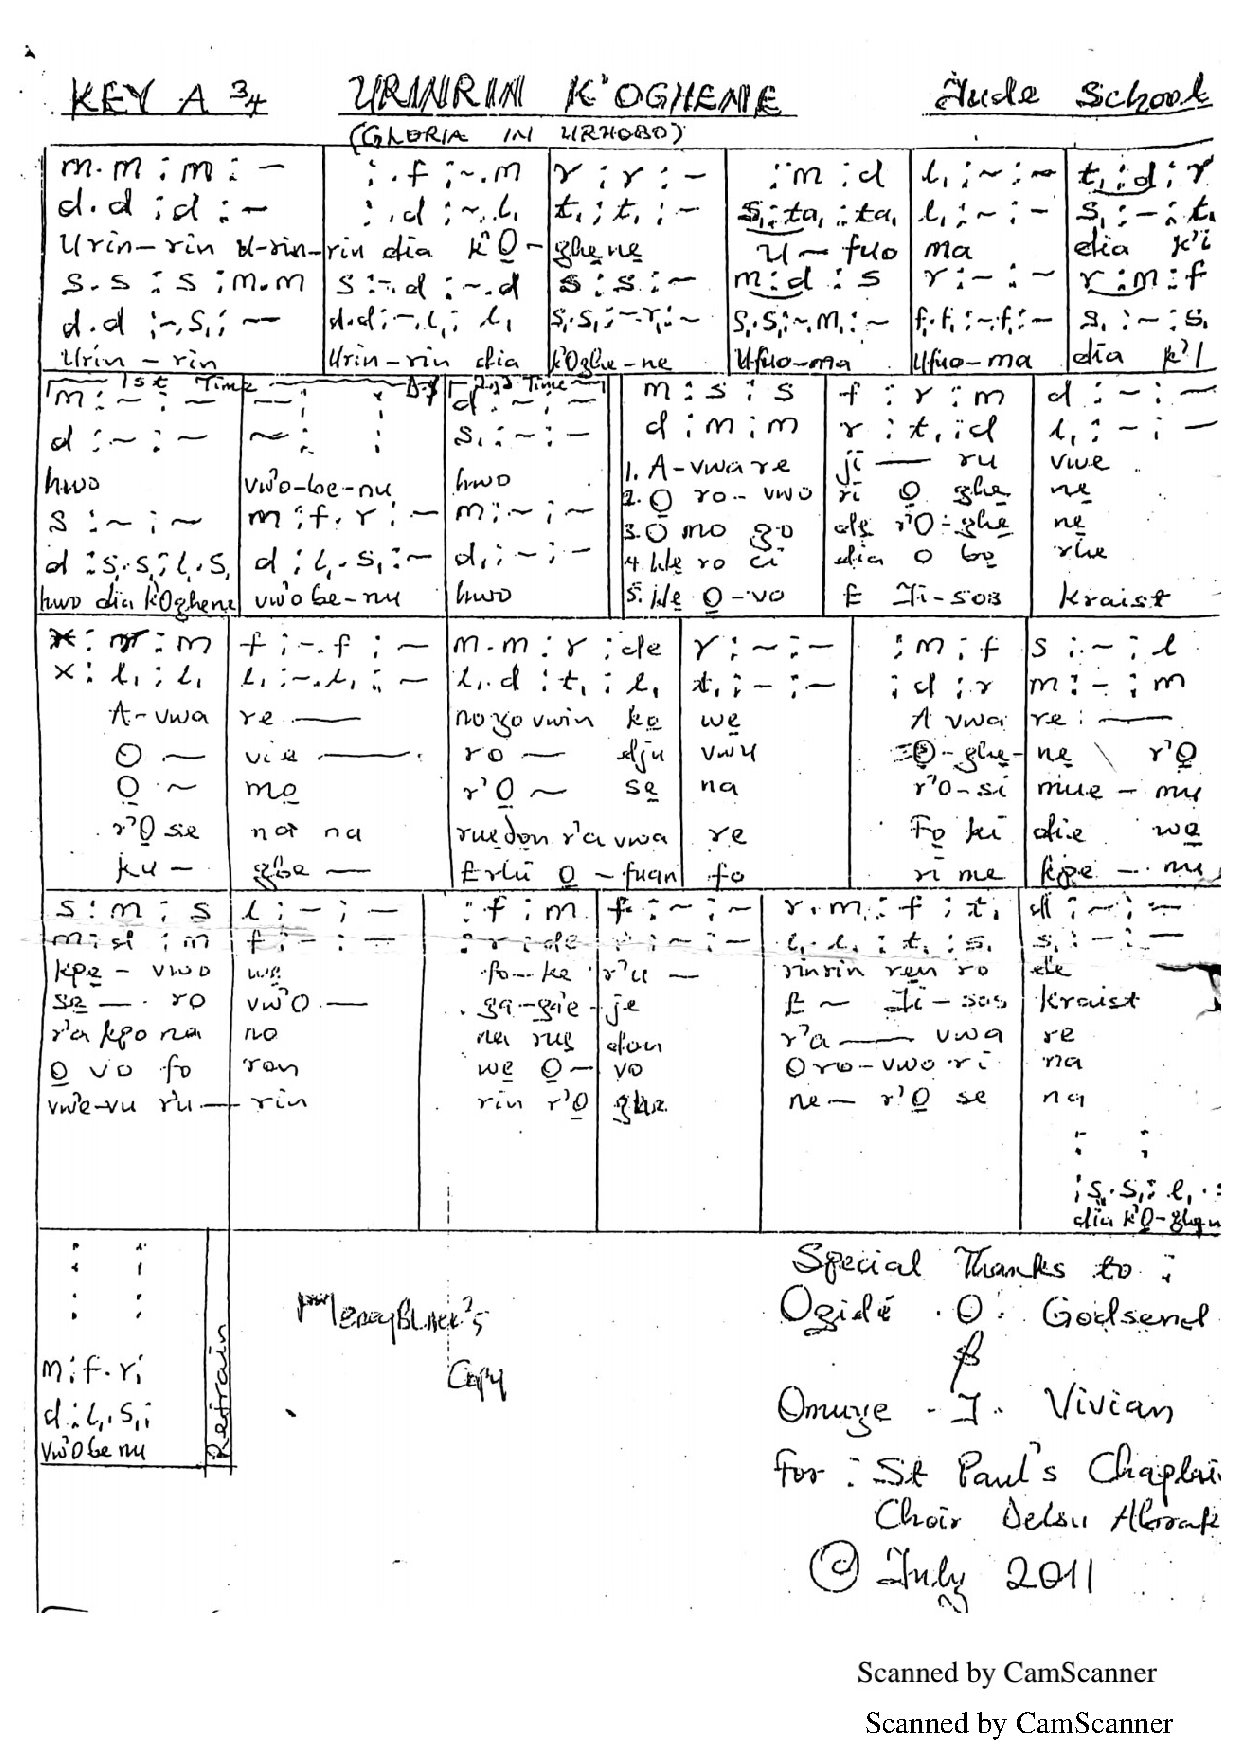 KEY A 3/4 URINRIN K'OGHENE Jude School
(GLORIA IN URHOBO)
m.m : m : – | : .f : –.m | r : r : – | : m : d | l, : – : – | t, : d : r
d.d : d : – | : .d : –.l, | t, : t, : – | s, : ta, : ta, | l, : – : – | s, : – : t,
Urin–rin U–rin–rin dia k'Ọ–ghẹnẹ U – fuo ma dia k'i
s.s : s : m.m | s : –.d : –.d | s : s : – | m : d : s | r : – : – | r : m : f
d.d : –.s, : – | d.d : –.l, : l, | s,.s, : –.r, : – | s,.s, : –.m, : – | f,.f, : –.f, : – | s, : – : s,
Urin–rin Urin–rin dia k'Oghe–ne Ufuo–ma Ufuo–ma dia k'I
1st Time 2nd Time
m : – : – | – : : | d : – : – | m : s : s | f : r : m | d : – : –
d : – : – | – : : | s, : – : – | d : m : m | r : t, : d | l, : – : –
hwo vw'o–be–nu hwo
1. A–vwa re ji — ru vwe
2. Ọ ro–vwo ri Ọ ghẹ nẹ
s : – : – | m : f.r : – | m : – : –
3. Ọ mo gọ r'Ọ–ghẹ nẹ
d : s,.s, : l,.s, | d : l,.s, : – | d, : – : –
dia o bọ rhe
hwo dia k'Oghene vw'o be–nu hwo
5. Ọ–vo E Ji–sos Kraist
x : m : m | f : –.f : – | m.m : r : de | r : – : – | : m : f | s : – : l
x : l, : l, | l, : –.l, : – | l,.d : t, : l, | t, : – : – | : d : r | m : – : m
A–vwa re — kẹ wẹ A vwa re —
O – vie — ro — dju vwu Ọ–ghẹ–nẹ r'Ọ
Ọ – mọ r'Ọ – sẹ na r'o–si mue – mu
r'Ọ se na re Fọ ki die wẹ
ku – gbe — Erhi Ọ – fuan fo ri me kpe – mu
s : m : s | l : – : – | : f : m | f : – : – | r.m : f : t, | d : – : –
m : d : m | f : – : – | : r : de | r : – : – | l,.l, : t, : s, | s, : – : –
kpẹ – vwo wẹ fo – kẹ r'u — rinrin ro de
sẹ — ro vw'O — ga–gae–je E – Ji–sos Kraist
r'a kpo na no na don r'a — vwa re
Ọ vo fo ron wẹ Ọ – vo Oro–vwo ri na
vwe–vu ru — rin rin r'Ọ ghẹ ne – r'Ọ se na
: :
: :
: s,.s, : l,.
dia k'Ọ–ghẹn
: :
: :
m : f.r :
d : l,.s, :
vw'o be nu
Refrain
MercyBliek's
Copy
Special Thanks to :
Ogidi . O. Godsend
&
Omuye . J. Vivian
For : St Paul's Chaplai
Choir Delsu Abrak
© July 2011
Scanned by CamScanner
Scanned by CamScanner